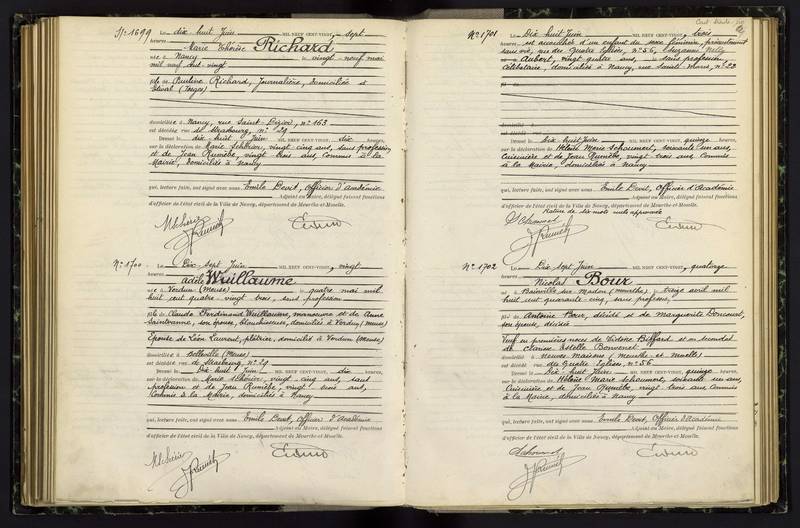 N° 1699 Le dix huit Juin MIL NEUF CENT-VINGT, sept
heures
Marie Thérèse Richard
née à Nancy le vingt neuf mai
mil neuf cent vingt
fille de Pauline Richard, Journalière, domiciliée à
Etival (Vosges)
domiciliée à Nancy, rue Saint-Dizier, n° 163
est décédée rue de Strasbourg, n° 29
Dressé le dix huit Juin MIL NEUF CENT-VINGT, dix heures,
sur la déclaration de Marie Schérier, vingt cinq ans, sans profession
et de Jean Rumèbe, vingt trois ans, Commis à la
Mairie, domiciliés à Nancy
qui, lecture faite, ont signé avec nous Emile Devit, Officier d'Académie
Adjoint au Maire, délégué faisant fonctions
d'officier de l'état civil de la Ville de Nancy, département de Meurthe et Moselle.
N° 1700 Le Dix sept Juin MIL NEUF CENT-VINGT, vingt
heures
Adèle Wuillaume
née à Verdun (Meuse) le quatre mai mil
huit cent quatre-vingt trois, sans profession
fille de Claude Ferdinand Wuillaume, manoeuvre et de Anne
son épouse, blanchisseuse, domiciliés à Verdun (Meuse)
Epouse de Léon Laurent, plâtrier, domicilié à Verdun (Meuse)
domiciliée à Belleville (Meuse)
est décédée rue de Strasbourg, n° 29
Dressé le Dix huit Juin MIL NEUF CENT-VINGT, dix heures,
sur la déclaration de Marie Schérier, vingt cinq ans, sans
profession et de Jean Rumèbe, vingt trois ans,
Commis à la Mairie, domiciliés à Nancy
qui, lecture faite, ont signé avec nous Emile Devit, Officier d'Académie
Adjoint au Maire, délégué faisant fonctions
d'officier de l'état civil de la Ville de Nancy, département de Meurthe et Moselle.
N° 1701 Le Dix huit Juin MIL NEUF CENT-VINGT, trois
heures, est accouchée d'un enfant du sexe féminin, présentement
sans vie, rue des Quatre Eglises, n° 56, Suzanne Nelly
Aubert, vingt quatre ans, sans profession
Célibataire, domiciliée à Nancy, rue Sainte-Marie, n° 23
domicilié à
est décédé rue
Dressé le Dix huit Juin MIL NEUF CENT-VINGT, quinze heures,
sur la déclaration de Marie soixante un ans,
Cuisinière et de Jean Rumèbe, vingt trois ans, Commis
à la Mairie, domiciliés à Nancy
qui, lecture faite, ont signé avec nous Emile Devit, Officier d'Académie
Adjoint au Maire, délégué faisant fonctions
d'officier de l'état civil de la Ville de Nancy, département de Meurthe et Moselle.
Rature de six mots nuls approuvée
N° 1702 Le Dix sept Juin MIL NEUF CENT-VINGT, quatorze
heures
Nicolas Bour
né à Bainville sur Madon (Meurthe) le treize avril mil
huit cent quarante-cinq, sans profession,
fils de Antoine Bour, décédé et de Marguerite Doncourt,
son épouse, décédée
Veuf en premières noces de Victoire et en secondes
de Clarisse Estelle
domicilié à Neuves-Maisons (Meurthe et Moselle)
est décédé rue des Quatre Eglises, n° 56
Dressé le Dix huit Juin MIL NEUF CENT-VINGT, quinze heures,
sur la déclaration de Marie soixante un ans,
Cuisinière et de Jean Rumèbe, vingt trois ans, Commis
à la Mairie, domiciliés à Nancy
qui, lecture faite, ont signé avec nous Emile Devit, Officier d'Académie
Adjoint au Maire, délégué faisant fonctions
d'officier de l'état civil de la Ville de Nancy, département de Meurthe et Moselle.